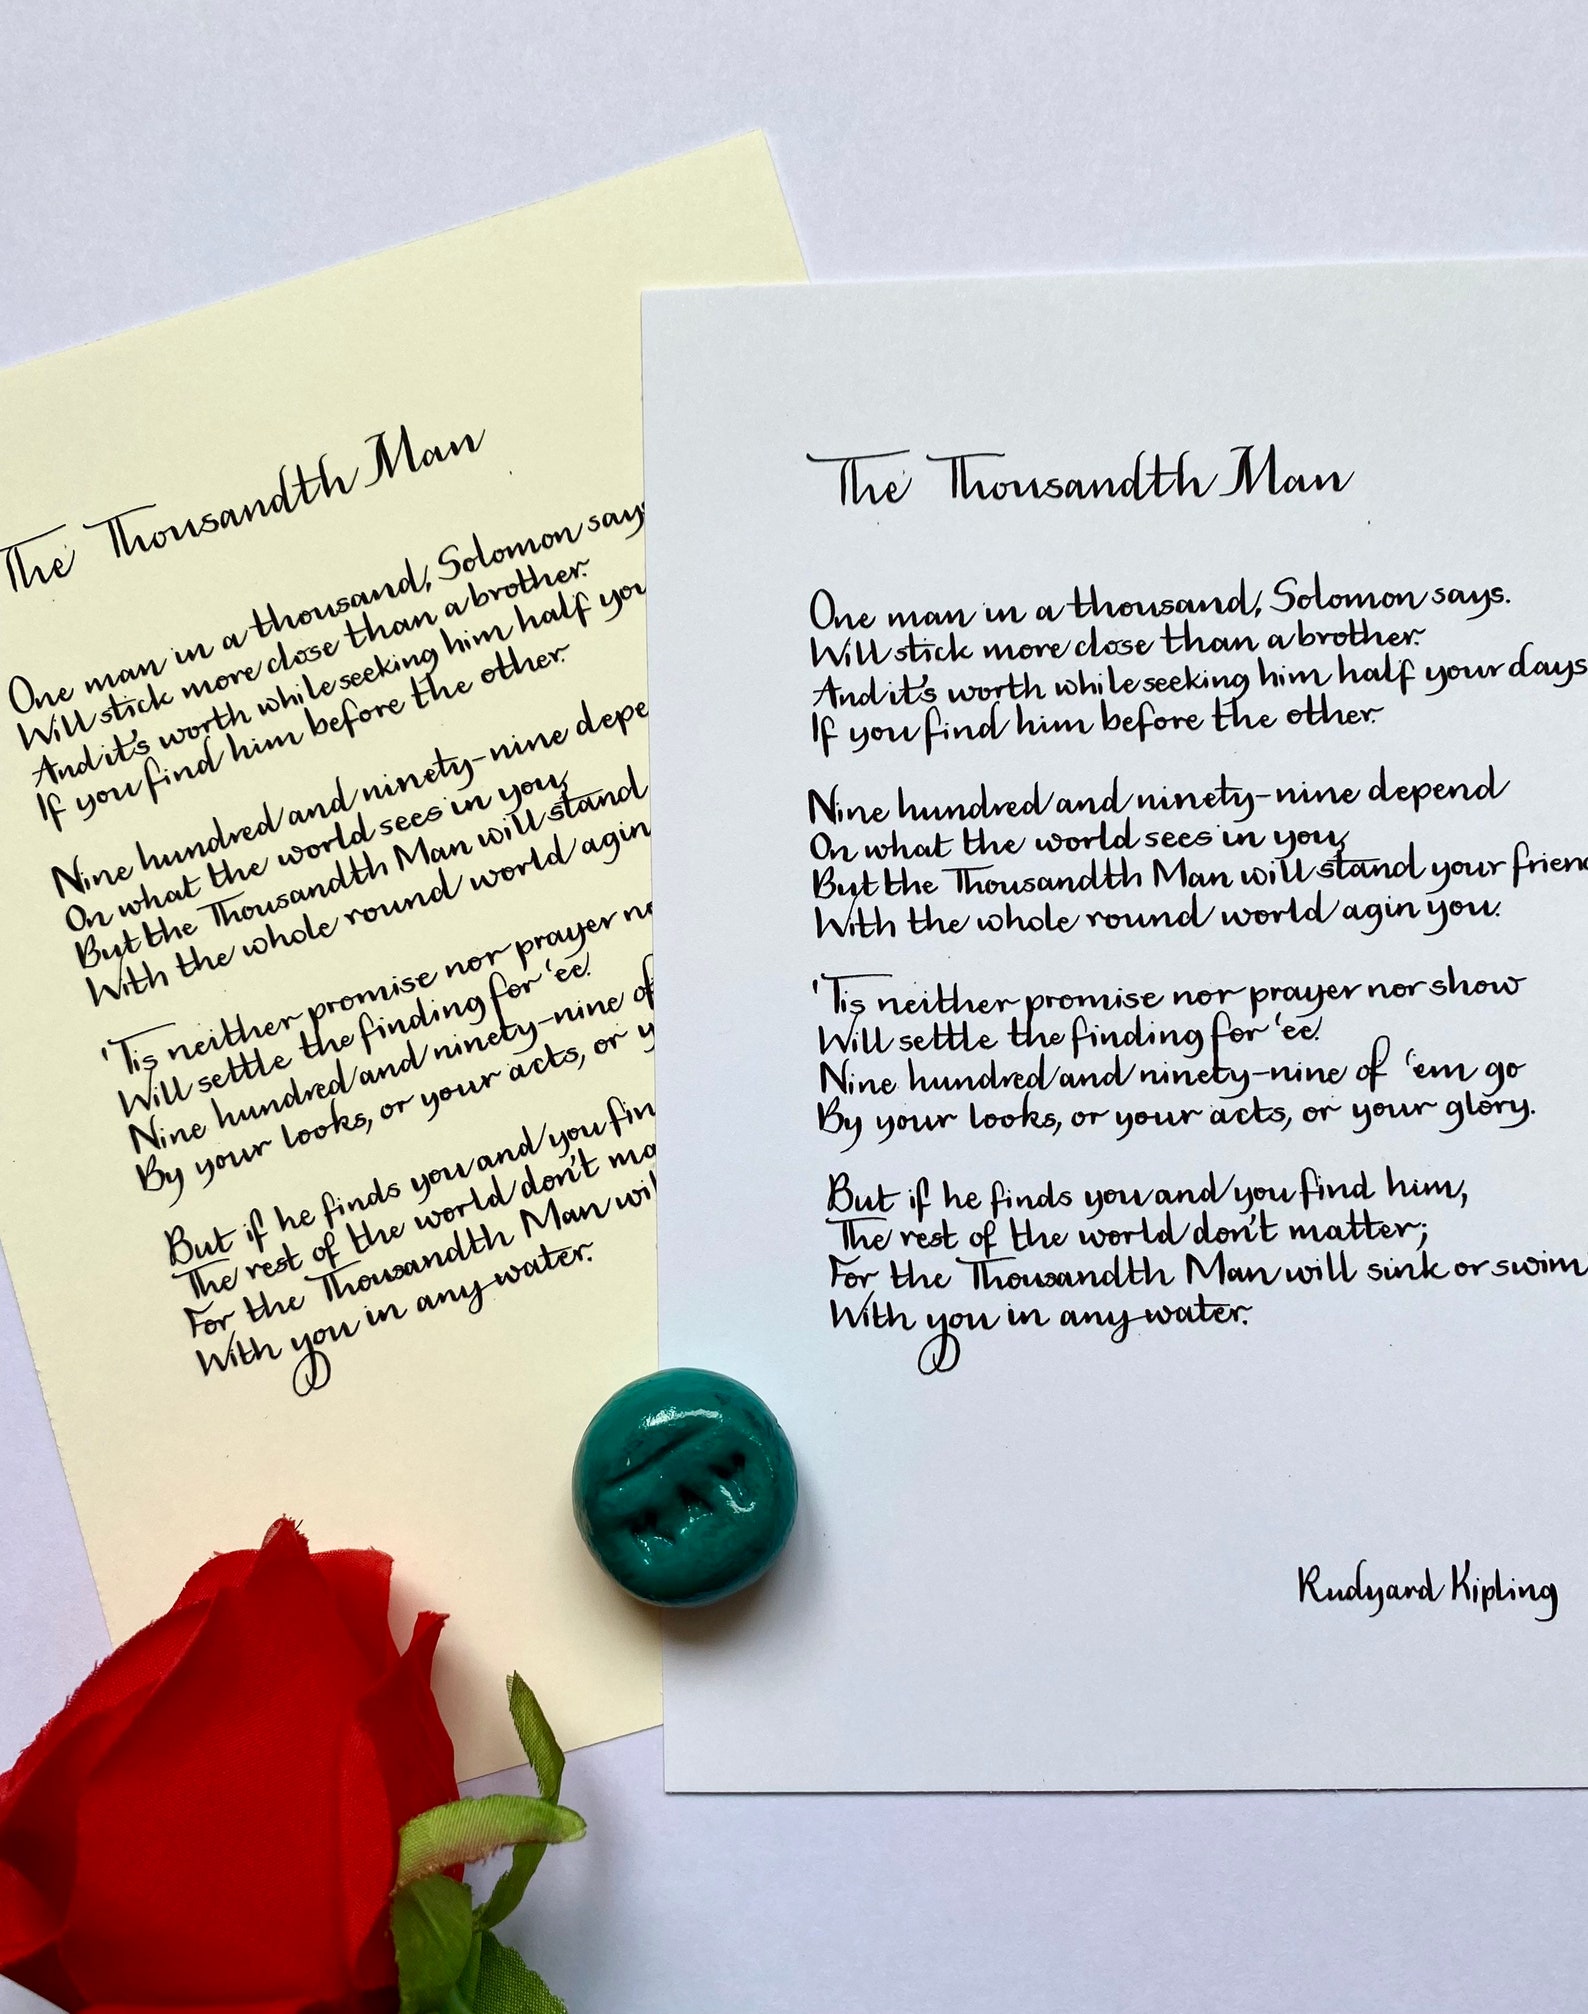 The Thousandth Man
One man in a thousand, Solomon says
Will stick more close than a brother.
And it's worth while seeking him half you
If you find him before the other.
Nine hundred and ninety-nine depe
On what the world sees in you,
But the Thousandth Man will stand
With the whole round world agin
'Tis neither promise nor prayer no
Will settle the finding for 'ee.
Nine hundred and ninety-nine of
By your looks, or your acts, or y
But if he finds you and you fin
The rest of the world don't ma
For the Thousandth Man wil
With you in any water.
The Thousandth Man
One man in a thousand, Solomon says.
Will stick more close than a brother.
And it's worth while seeking him half your days
If you find him before the other.
Nine hundred and ninety-nine depend
On what the world sees in you,
But the Thousandth Man will stand your frien
With the whole round world agin you.
'Tis neither promise nor prayer nor show
Will settle the finding for 'ee.
Nine hundred and ninety-nine of 'em go
By your looks, or your acts, or your glory.
But if he finds you and you find him,
The rest of the world don't matter;
For the Thousandth Man will sink or swim
With you in any water.
Rudyard Kipling